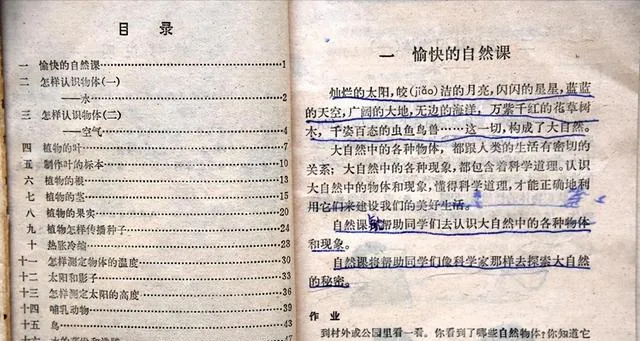 目录
一 愉快的自然课……1
二 怎样认识物体(一)
——水……2
三 怎样认识物体(二)
——空气……4
四 植物的叶……7
五 制作叶的标本……10
六 植物的根……13
七 植物的茎……15
八 植物的果实……20
九 植物怎样传播种子……24
十 热胀冷缩……28
十一 怎样测定物体的温度……30
十二 太阳和影子……33
十三 怎样测定太阳的高度……36
十四 哺乳动物……39
十五 鸟……43
47
一 愉快的自然课
灿烂的太阳,皎(jiǎo)洁的月亮,闪闪的星星,蓝蓝
的天空,广阔的大地,无边的海洋,万紫千红的花草树
木,千姿百态的虫鱼鸟兽……这一切,构成了大自然。
大自然中的各种物体,都跟人类的生活有密切的
关系;大自然中的各种现象,都包含着科学道理。认识
大自然中的物体和现象,懂得科学道理,才能正确地利
用它们来建设我们的美好生活。
自然课将帮助同学们去认识大自然中的各种物体
和现象。
自然课将帮助同学们像科学家那样去探索大自然
的秘密。
作业
到村外或公园里看一看。你看到了哪些自然物体?你知道它